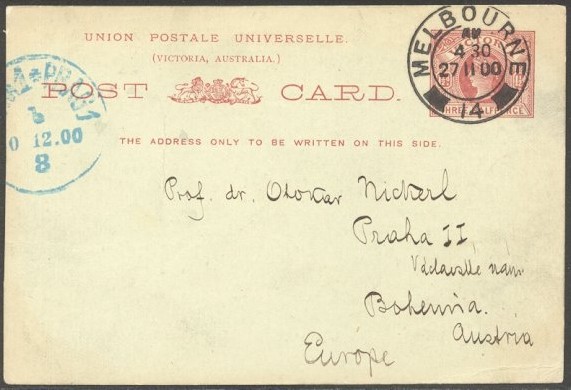 UNION POSTALE UNIVERSELLE.
(VICTORIA, AUSTRALIA.)
POST CARD.
THE ADDRESS ONLY TO BE WRITTEN ON THIS SIDE.
MELBOURNE
4 30
27 11 00
14
THREE HALFPENCE
PRAGA
12.00
8
Prof. dr. Otokar Nickerl
Praha II
Bohemia.
Austria
Europe